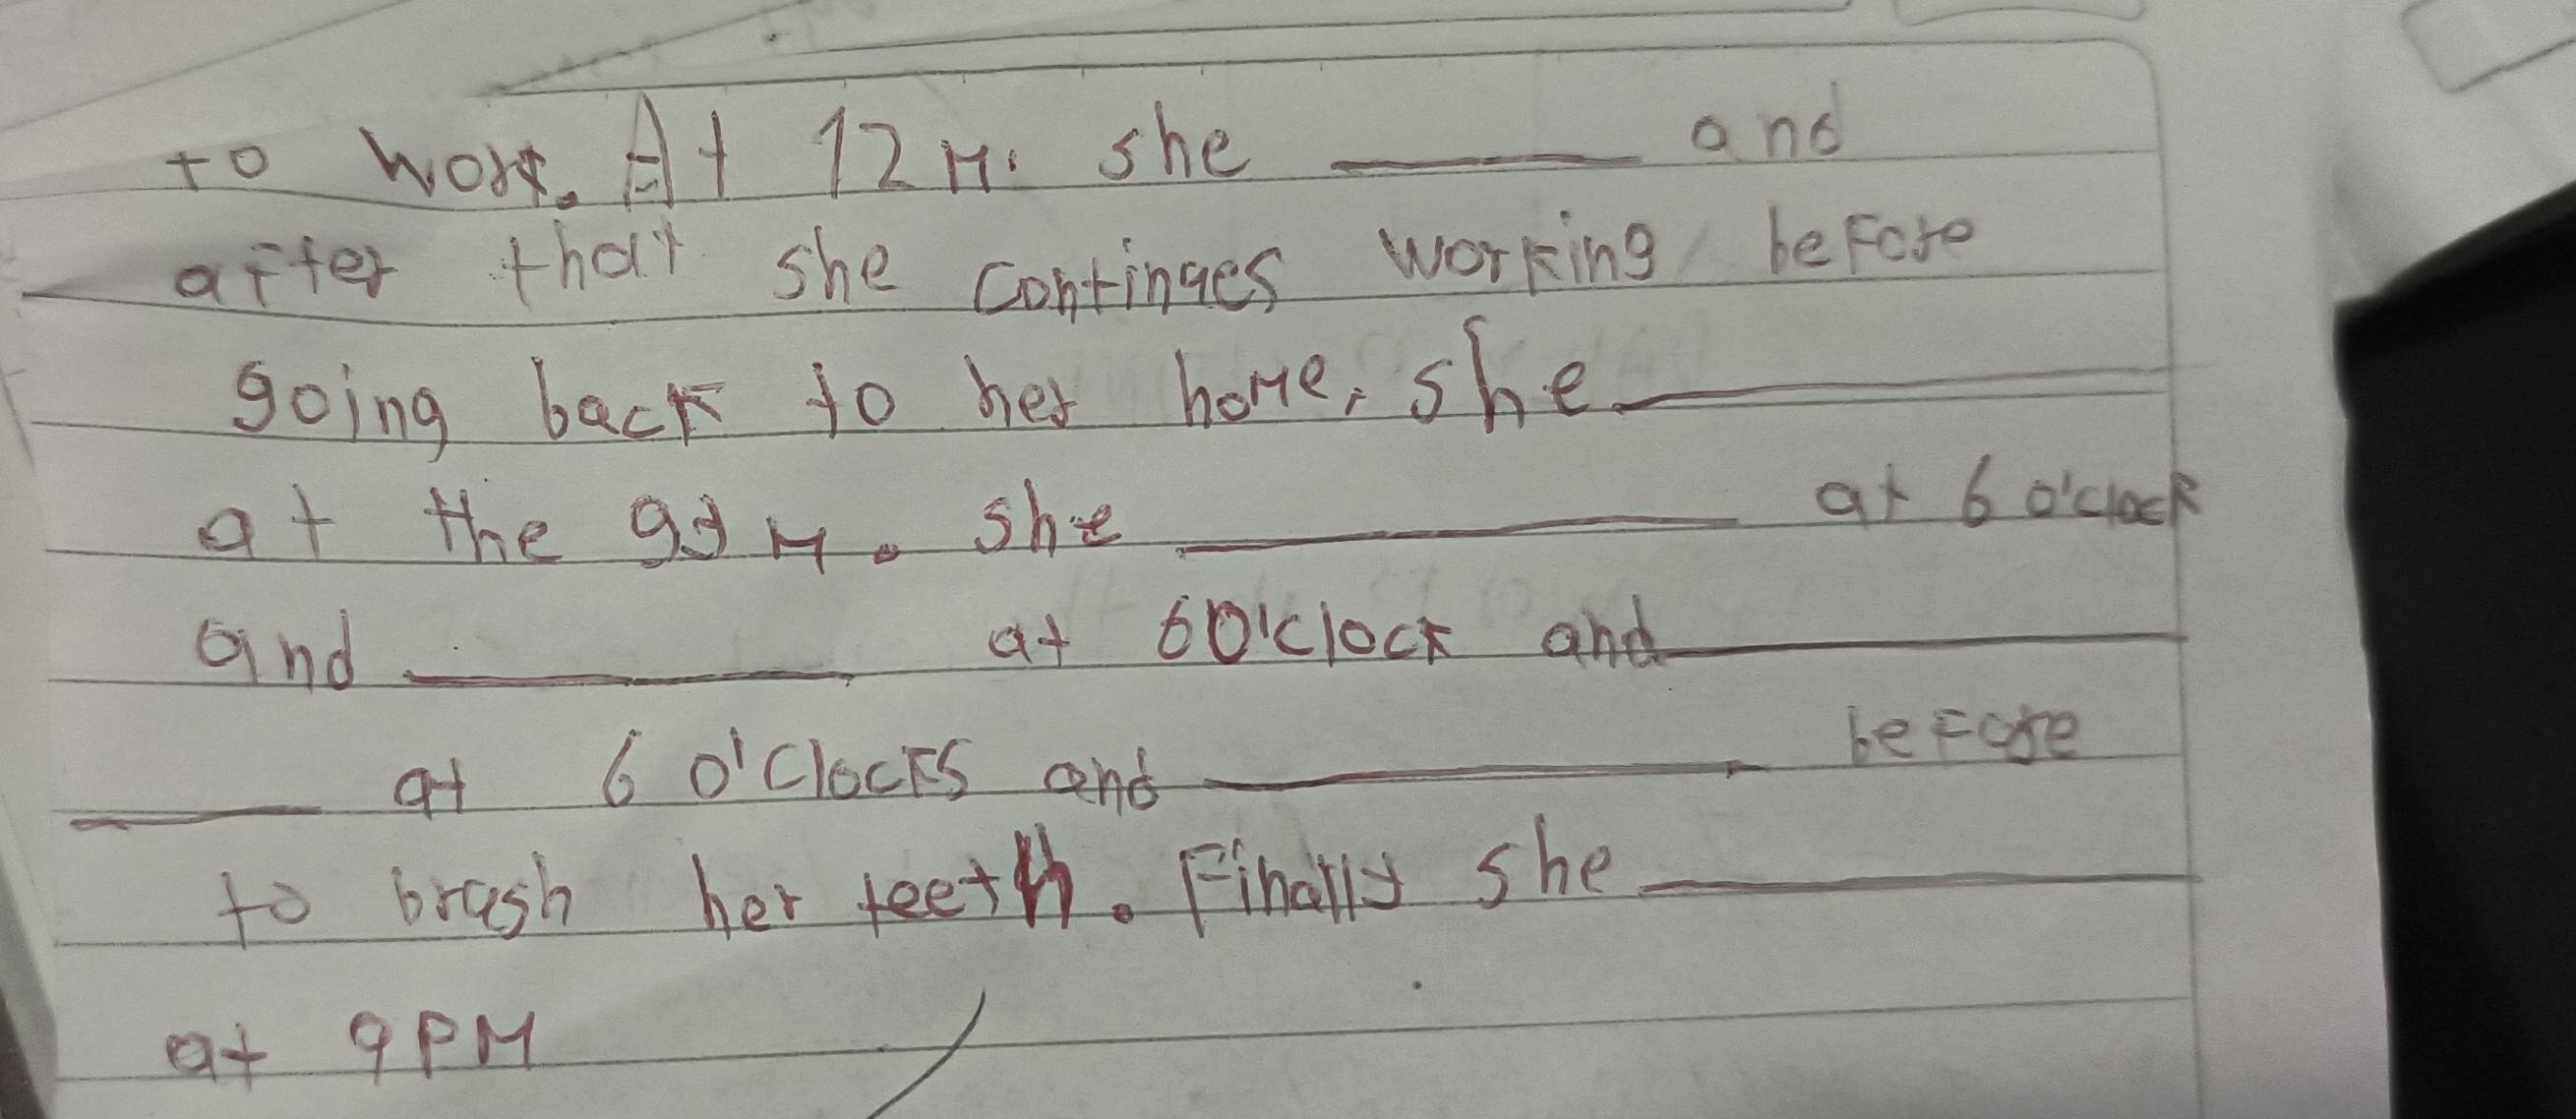 to work. At 12 M. she ______ and
after that she continues working before
going back to her home, she ______
at the gym. she ______ at 6 o'clock
and ______ at 6 O'clock and ______
______ at 6 o'clocks and ______ before
to brush her teeth. Finally she ______
at 9 PM